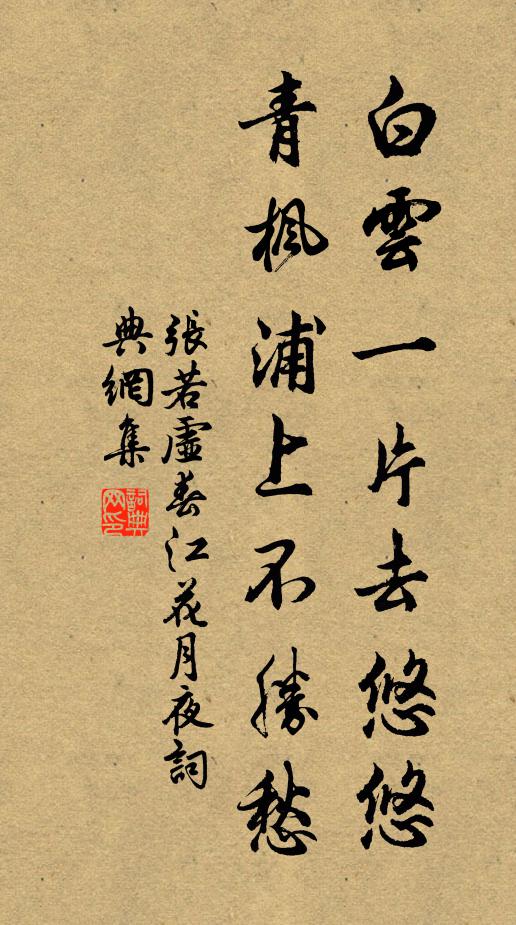 白雲一片去悠悠
青楓浦上不勝愁
張若虛春江花月夜詞
典網集
詞典网印